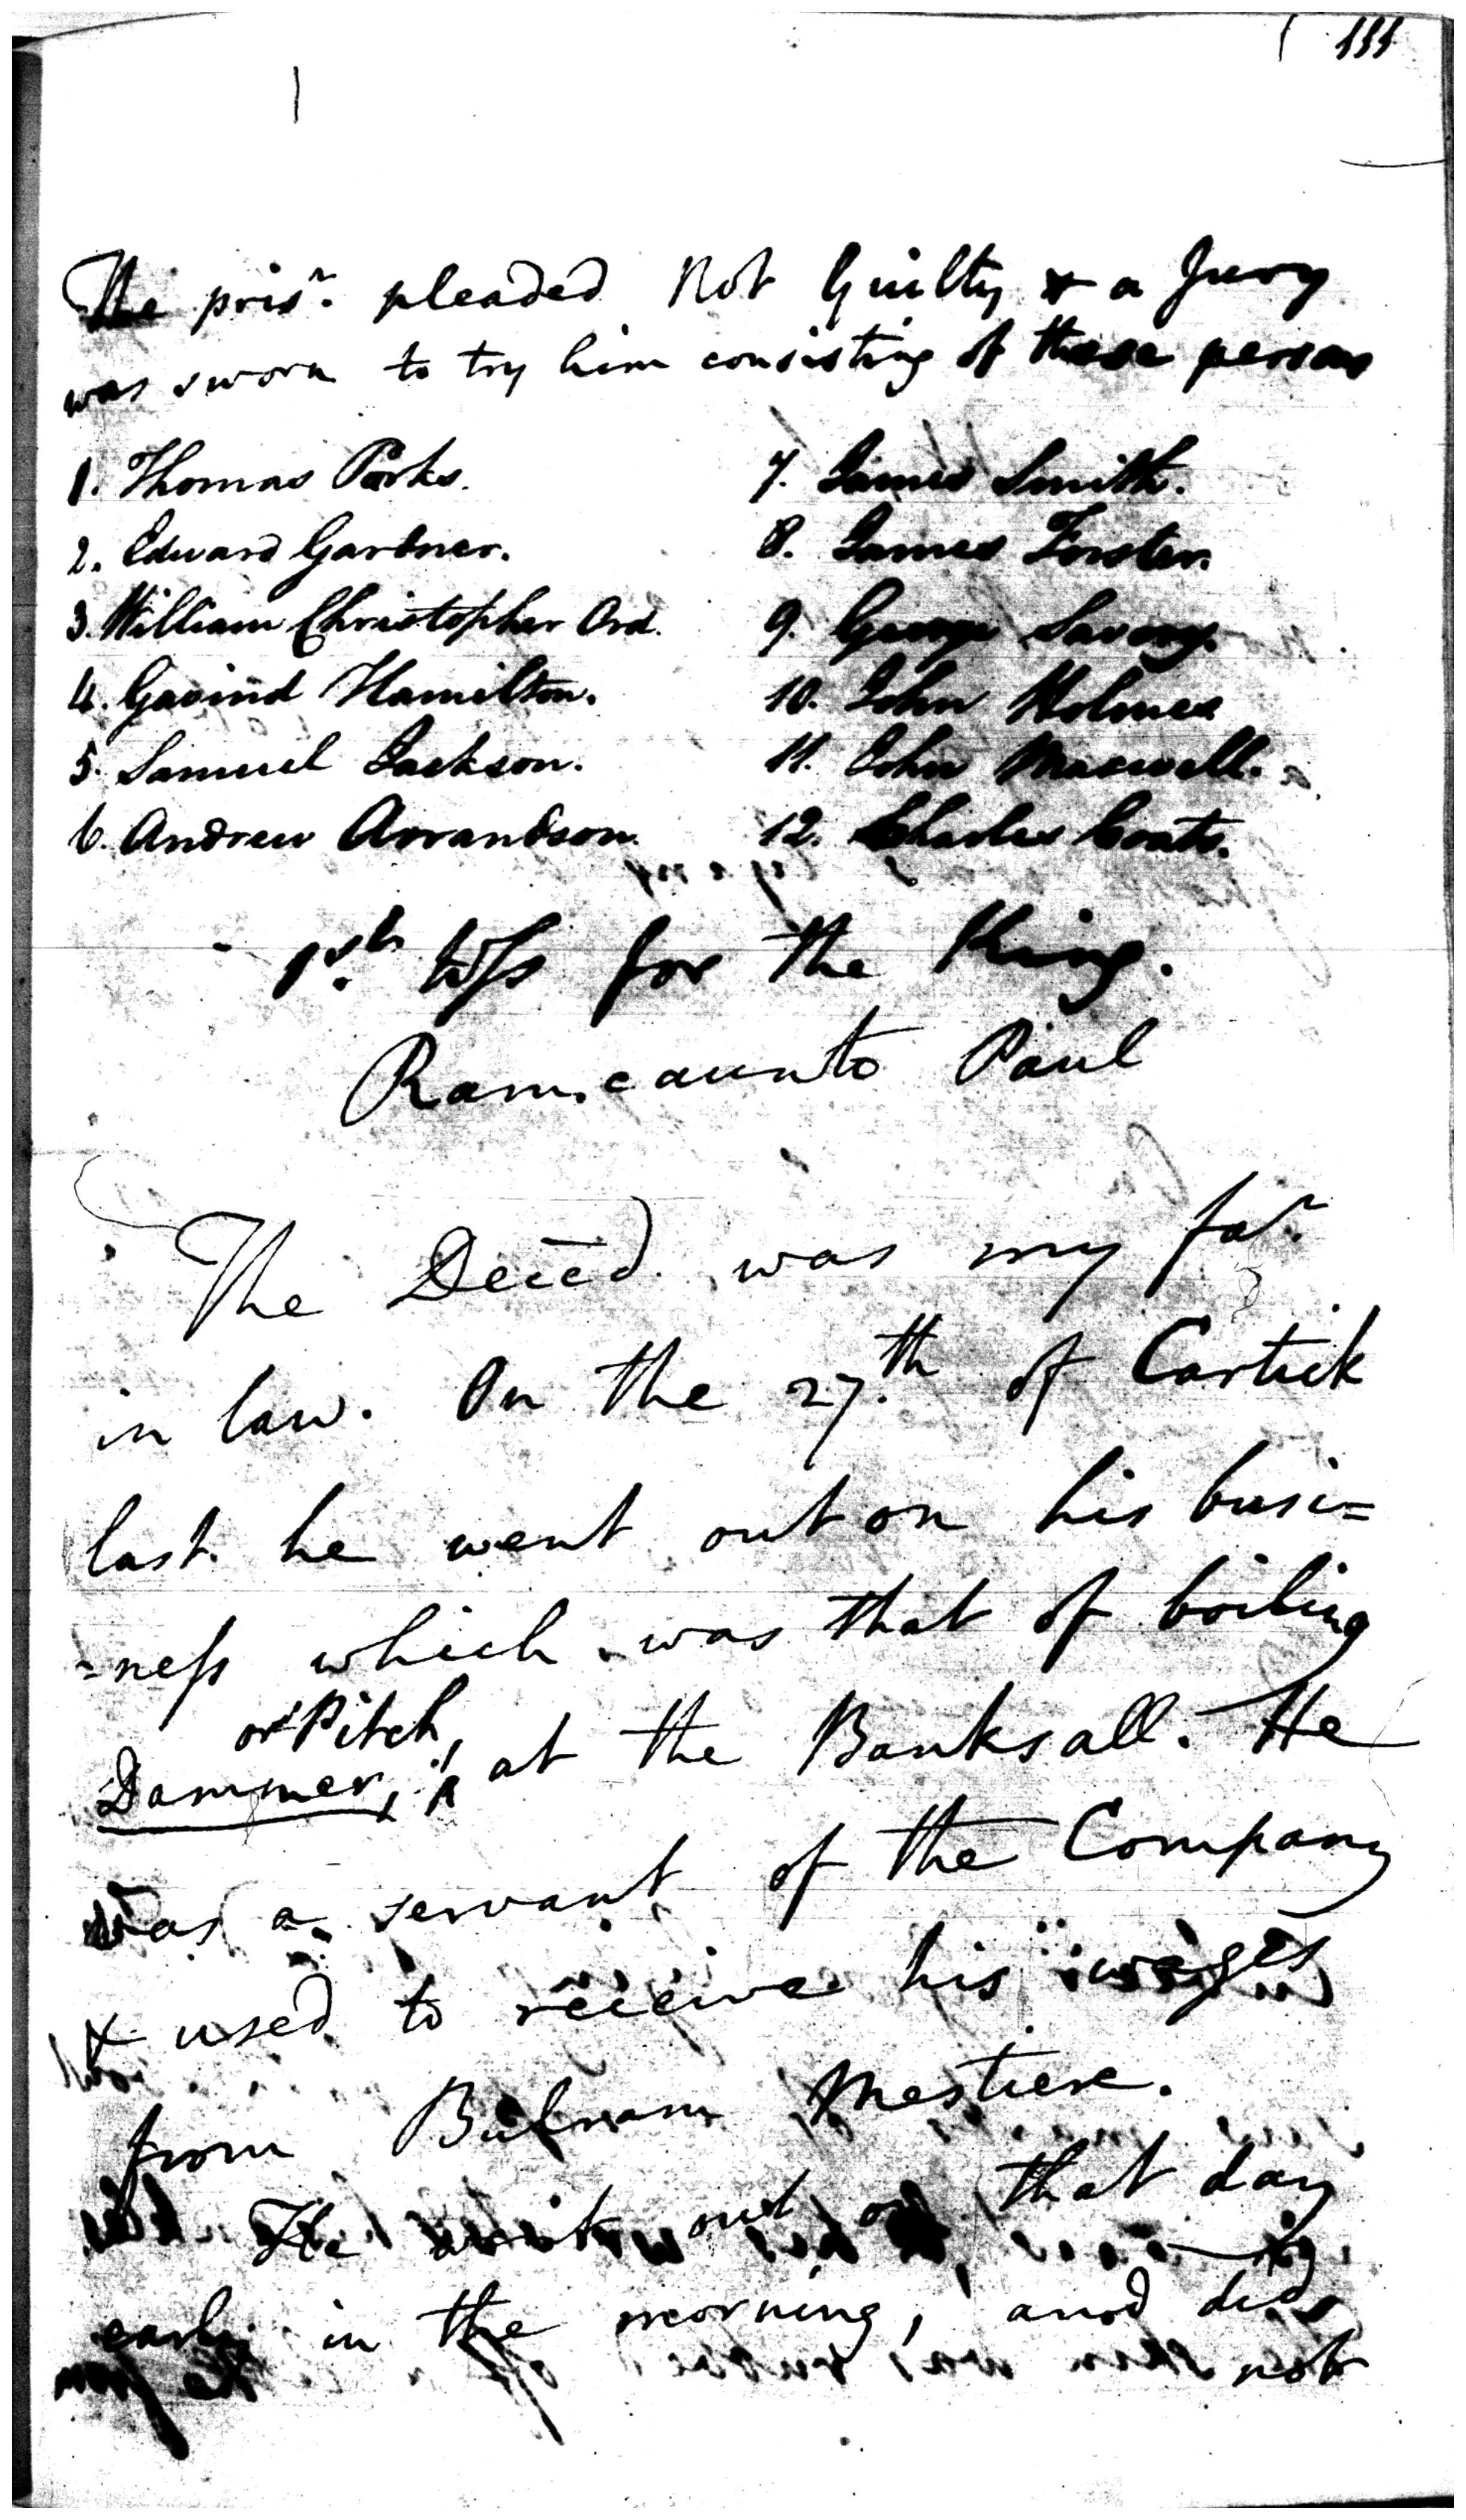 111
The prisr. pleaded Not Guilty & a Jury
was sworn to try him consisting of these persons
1. Thomas Parks.
2. Edward Gardner.
3. William Christopher Ord.
4. Gavind Hamilton.
5. Samuel Jackson.
6. Andrew Arrandson.
7. James Smith.
8. James Forster.
9. George Savory.
10. John Holmes
11. John Maxwell.
12. Charles Coats.
1st. Wss for the King.
Ramcaunto Paul
The Deced. was my far.
in law. On the 27.th of Cartick
last he went out on his busi=
=ness which was that of boiling
or Pitch,
Dammer, at the Banksall. He
was a servant of the Company
& used to receive his wages
from Bulram Mestiere.
He went out on that day
early in the morning, and did
not